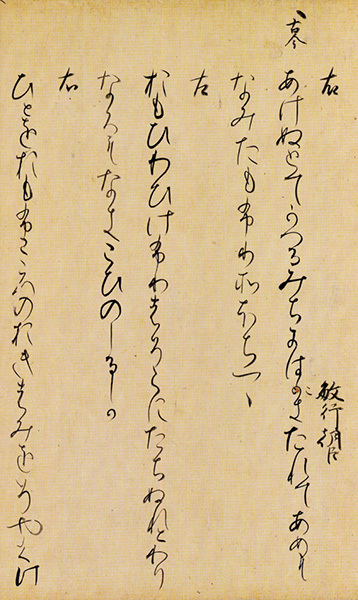 右
古今
あけぬとてかへるみちにはこきたれてあめも
敏行朝臣
なみたもふりそほちつゝ
左
おもひわひけふりはそらにたちぬれとわり
なくもなきこひのしるしか
右
ひとをおもふこゝろのおきはみをそやくけ